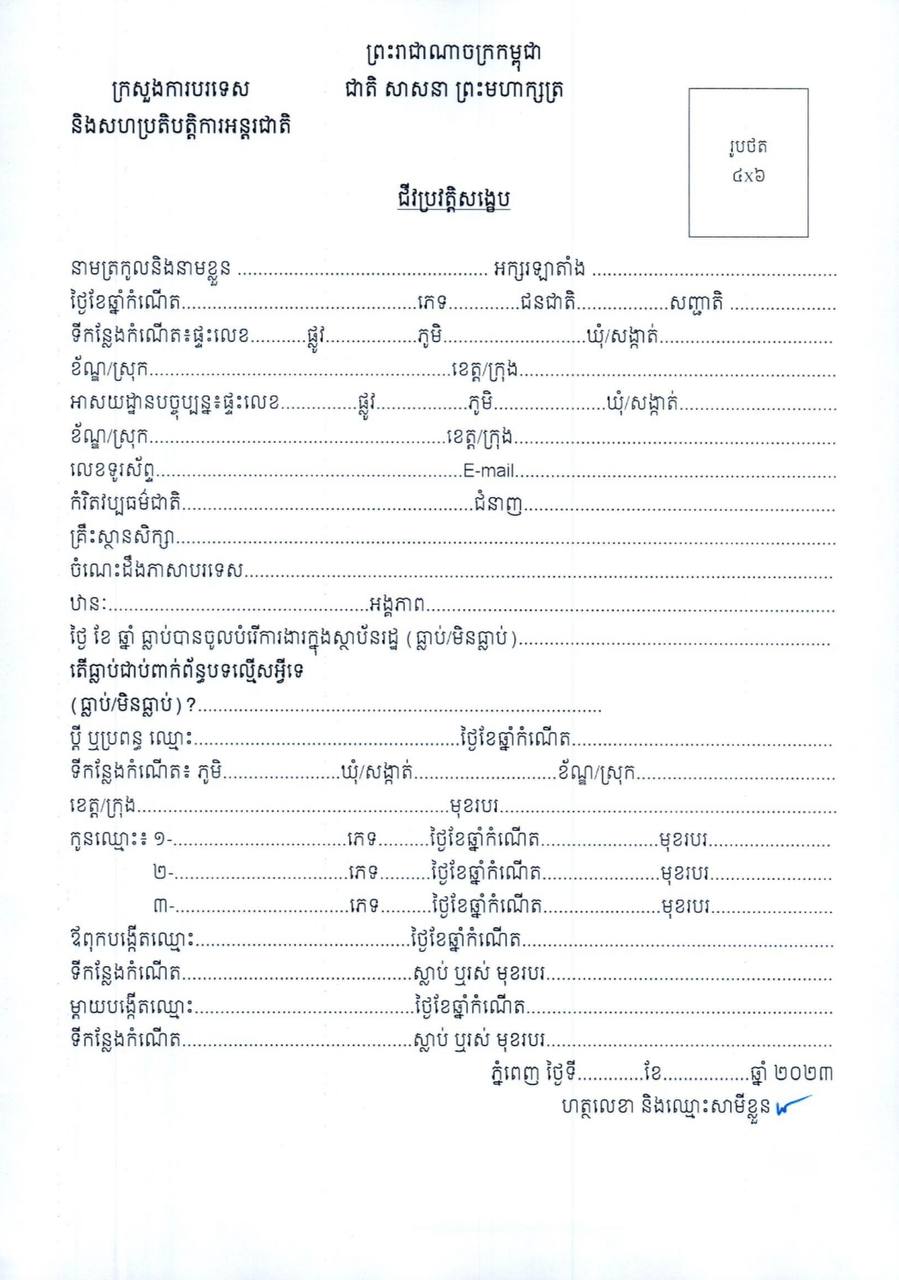 ព្រះរាជាណាចក្រកម្ពុជា
ក្រសួងការបរទេស ជាតិ សាសនា ព្រះមហាក្សត្រ
និងសហប្រតិបត្តិការអន្តរជាតិ
រូបថត
៤x៦
ជីវប្រវត្តិសង្ខេប
នាមត្រកូលនិងនាមខ្លួន ................................................ អក្សរឡាតាំង ...............................................
ថ្ងៃខែឆ្នាំកំណើត.............................................ភេទ..............ជនជាតិ..................សញ្ជាតិ ....................
ទីកន្លែងកំណើត៖ផ្ទះលេខ...........ផ្លូវ..................ភូមិ............................ឃុំ/សង្កាត់..................................
ខ័ណ្ឌ/ស្រុក..........................................................ខេត្ត/ក្រុង.............................................................
អាសយដ្ឋានបច្ចុប្បន្ន៖ផ្ទះលេខ...............ផ្លូវ..................ភូមិ......................ឃុំ/សង្កាត់..............................
ខ័ណ្ឌ/ស្រុក.........................................................ខេត្ត/ក្រុង..............................................................
លេខទូរស័ព្ទ...........................................................E-mail..............................................................
កំរិតវប្បធម៌ជាតិ........................................................ជំនាញ............................................................
គ្រឹះស្ថានសិក្សា................................................................................................................................
ចំណេះដឹងភាសាបរទេស.................................................................................................................
ឋានៈ..................................................អង្គភាព...............................................................................
ថ្ងៃ ខែ ឆ្នាំ ធ្លាប់បានចូលបំរើការងារក្នុងស្ថាប័នរដ្ឋ (ធ្លាប់/មិនធ្លាប់)............................................................
តើធ្លាប់ជាប់ពាក់ព័ន្ធបទល្មើសអ្វីទេ
(ធ្លាប់/មិនធ្លាប់)?..............................................................................
ប្តី ឬប្រពន្ធ ឈ្មោះ...................................................ថ្ងៃខែឆ្នាំកំណើត..................................................
ទីកន្លែងកំណើត៖ ភូមិ.......................ឃុំ/សង្កាត់...........................ខ័ណ្ឌ/ស្រុក......................................
ខេត្ត/ក្រុង............................................................មុខរបរ.................................................................
កូនឈ្មោះ៖ ១-.................................ភេទ..........ថ្ងៃខែឆ្នាំកំណើត.......................មុខរបរ........................
២-.................................ភេទ..........ថ្ងៃខែឆ្នាំកំណើត.......................មុខរបរ........................
៣-.................................ភេទ..........ថ្ងៃខែឆ្នាំកំណើត.......................មុខរបរ........................
ឪពុកបង្កើតឈ្មោះ.........................................ថ្ងៃខែឆ្នាំកំណើត............................................................
ទីកន្លែងកំណើត............................................ស្លាប់ ឬរស់ មុខរបរ.......................................................
ម្តាយបង្កើតឈ្មោះ..........................................ថ្ងៃខែឆ្នាំកំណើត...........................................................
ទីកន្លែងកំណើត............................................ស្លាប់ ឬរស់ មុខរបរ.......................................................
ភ្នំពេញ ថ្ងៃទី.............ខែ.................ឆ្នាំ ២០២៣
ហត្ថលេខា និងឈ្មោះសាមីខ្លួន